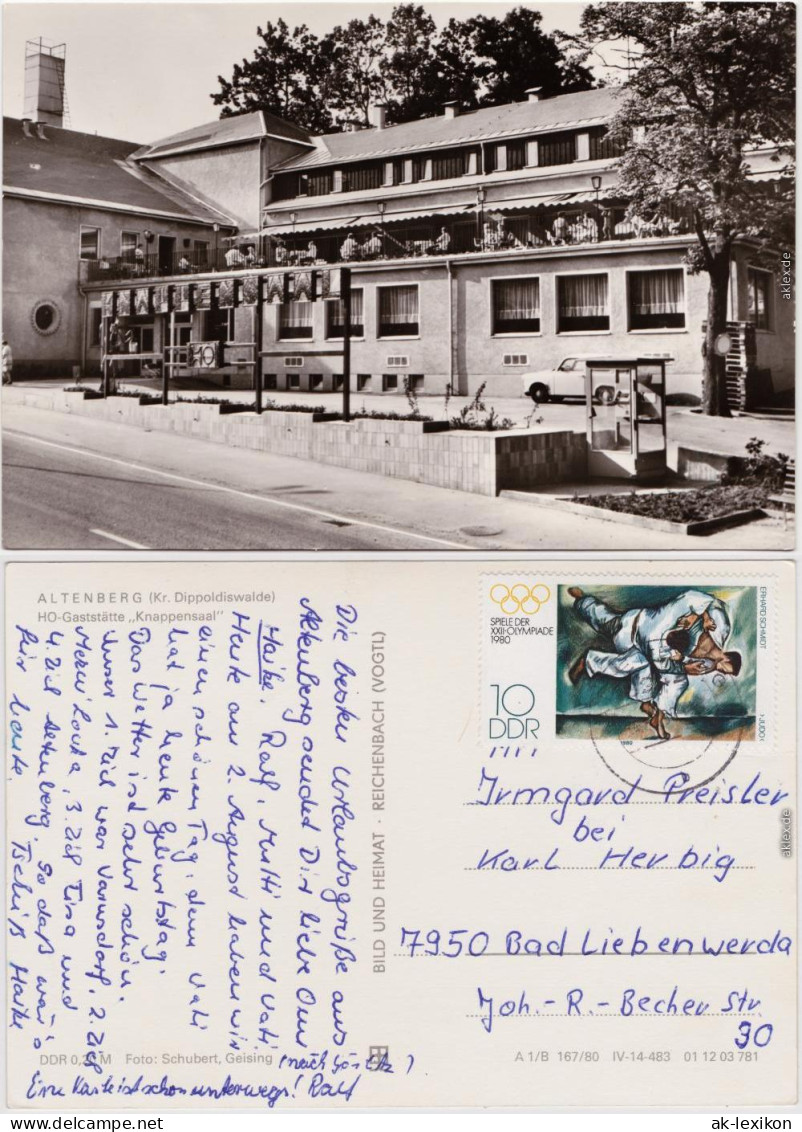 HO
aklex.de
ALTENBERG (Kr. Dippoldiswalde)
HO-Gaststätte „Knappensaal"
Die besten Urlaubsgrüße aus
Altenberg sendet Dir liebe Omi
Heike, Ralf, Mutti und Vati
Heute am 2. August haben wir
einen schönen Tag, denn Vati
hat ja heute Geburtstag.
Das Wetter ist sehr schön.
Unser 1. Ziel war Varnsdorf, 2. Ziel
4. Ziel Altenberg. So daß wär's
für heute. Tschüß Heike
Eine Karte ist schon unterwegs! Ralf
DDR 0,20 M Foto: Schubert, Geising
BILD UND HEIMAT · REICHENBACH (VOGTL)
SPIELE DER
XXII·OLYMPIADE
1980
10
DDR
ERHARD SCHMIDT
JUDO
1980
Irmgard Preisler
bei
Karl Herbig
7950 Bad Liebenwerda
Joh.-R.-Becher Str.
90
A 1/B 167/80 IV-14-483 01 12 03 781
aklex.de
ak-lexikon